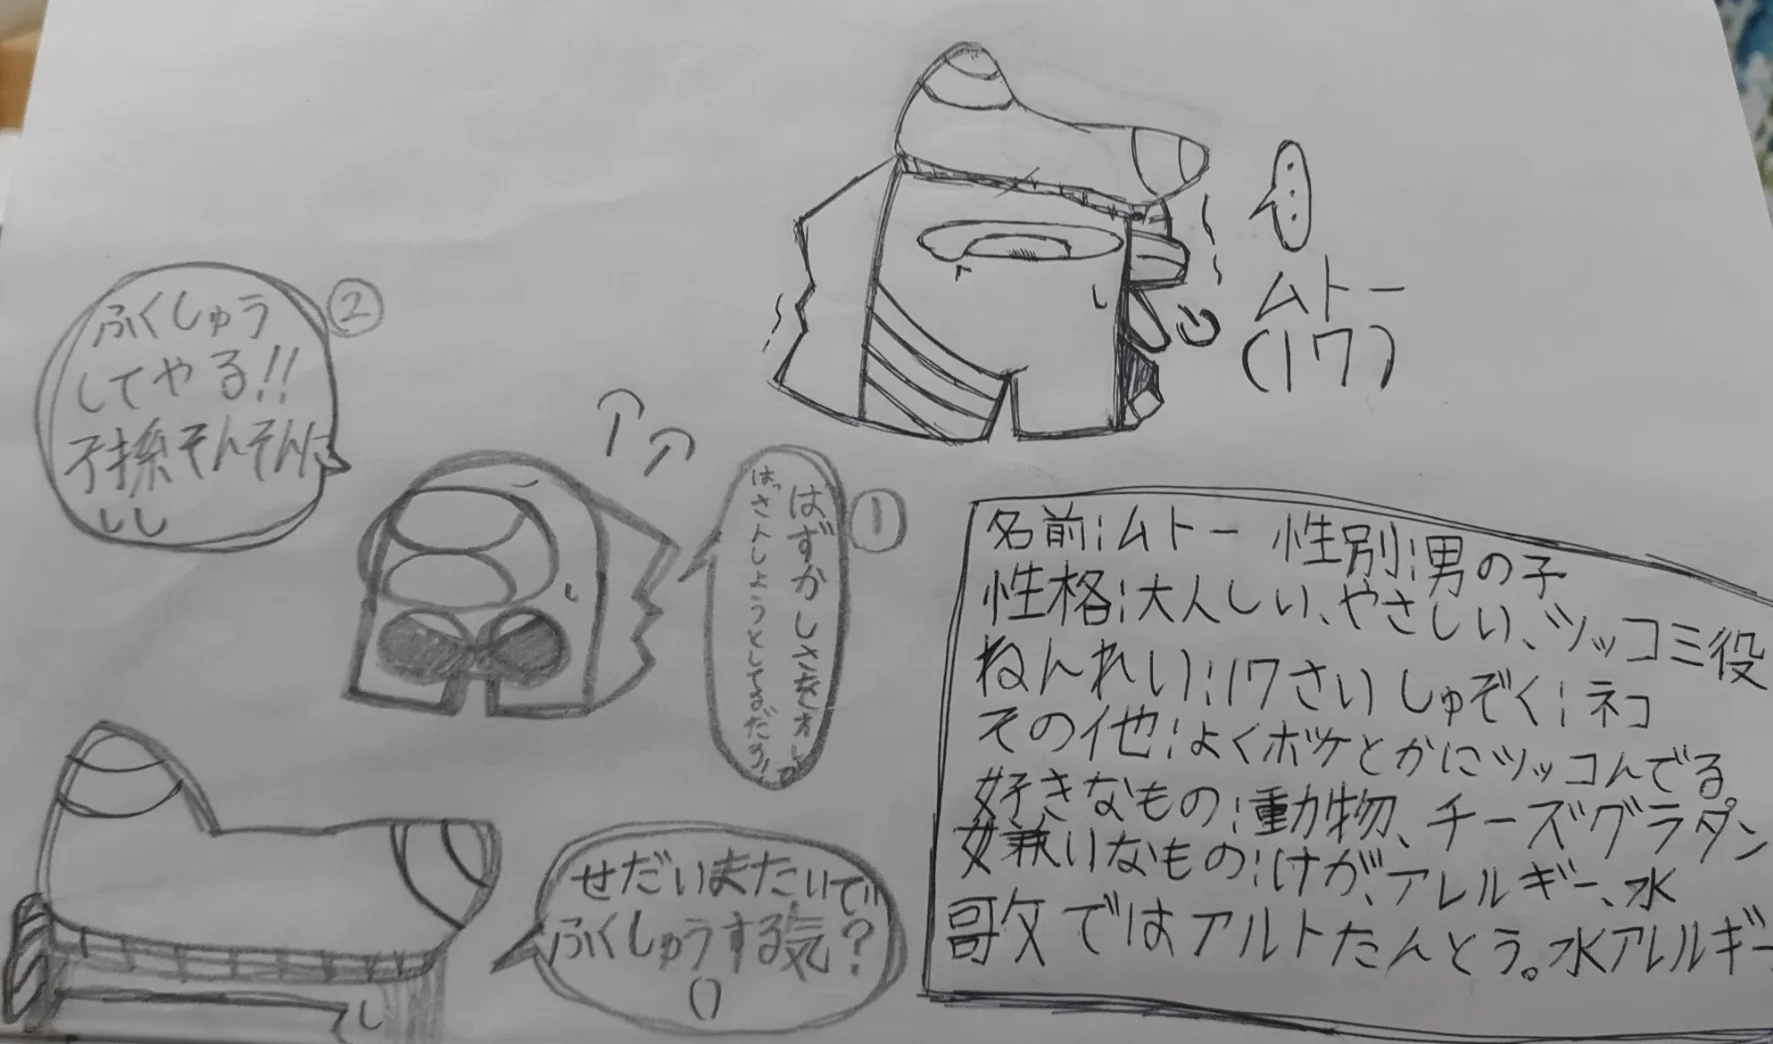 ムトー
(17)
②
ふくしゅう
してやる!!
子孫そんそんに
①
はずかしさを
はっさんしようとしてるだろ!
せだいまたいで
ふくしゅうする気?
名前:ムトー 性別:男の子
性格:大人しい、やさしい、ツッコミ役
ねんれい:17さい しゅぞく:ネコ
その他:よくボケとかにツッコんでる
好きなもの:動物、チーズグラタン
嫌いなもの:けが、アレルギー、水
歌ではアルトたんとう。水アレルギー